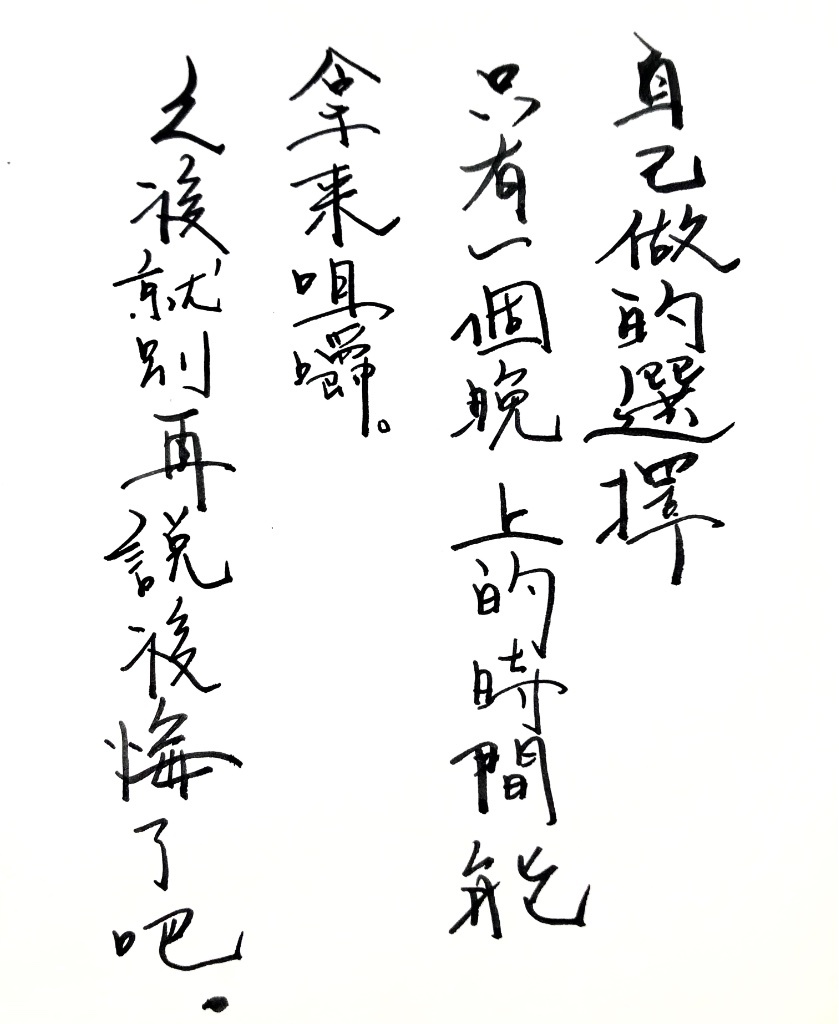 自己做的選擇
只有一個晚上的時間能
拿來咀嚼。
之後就別再說後悔了吧.